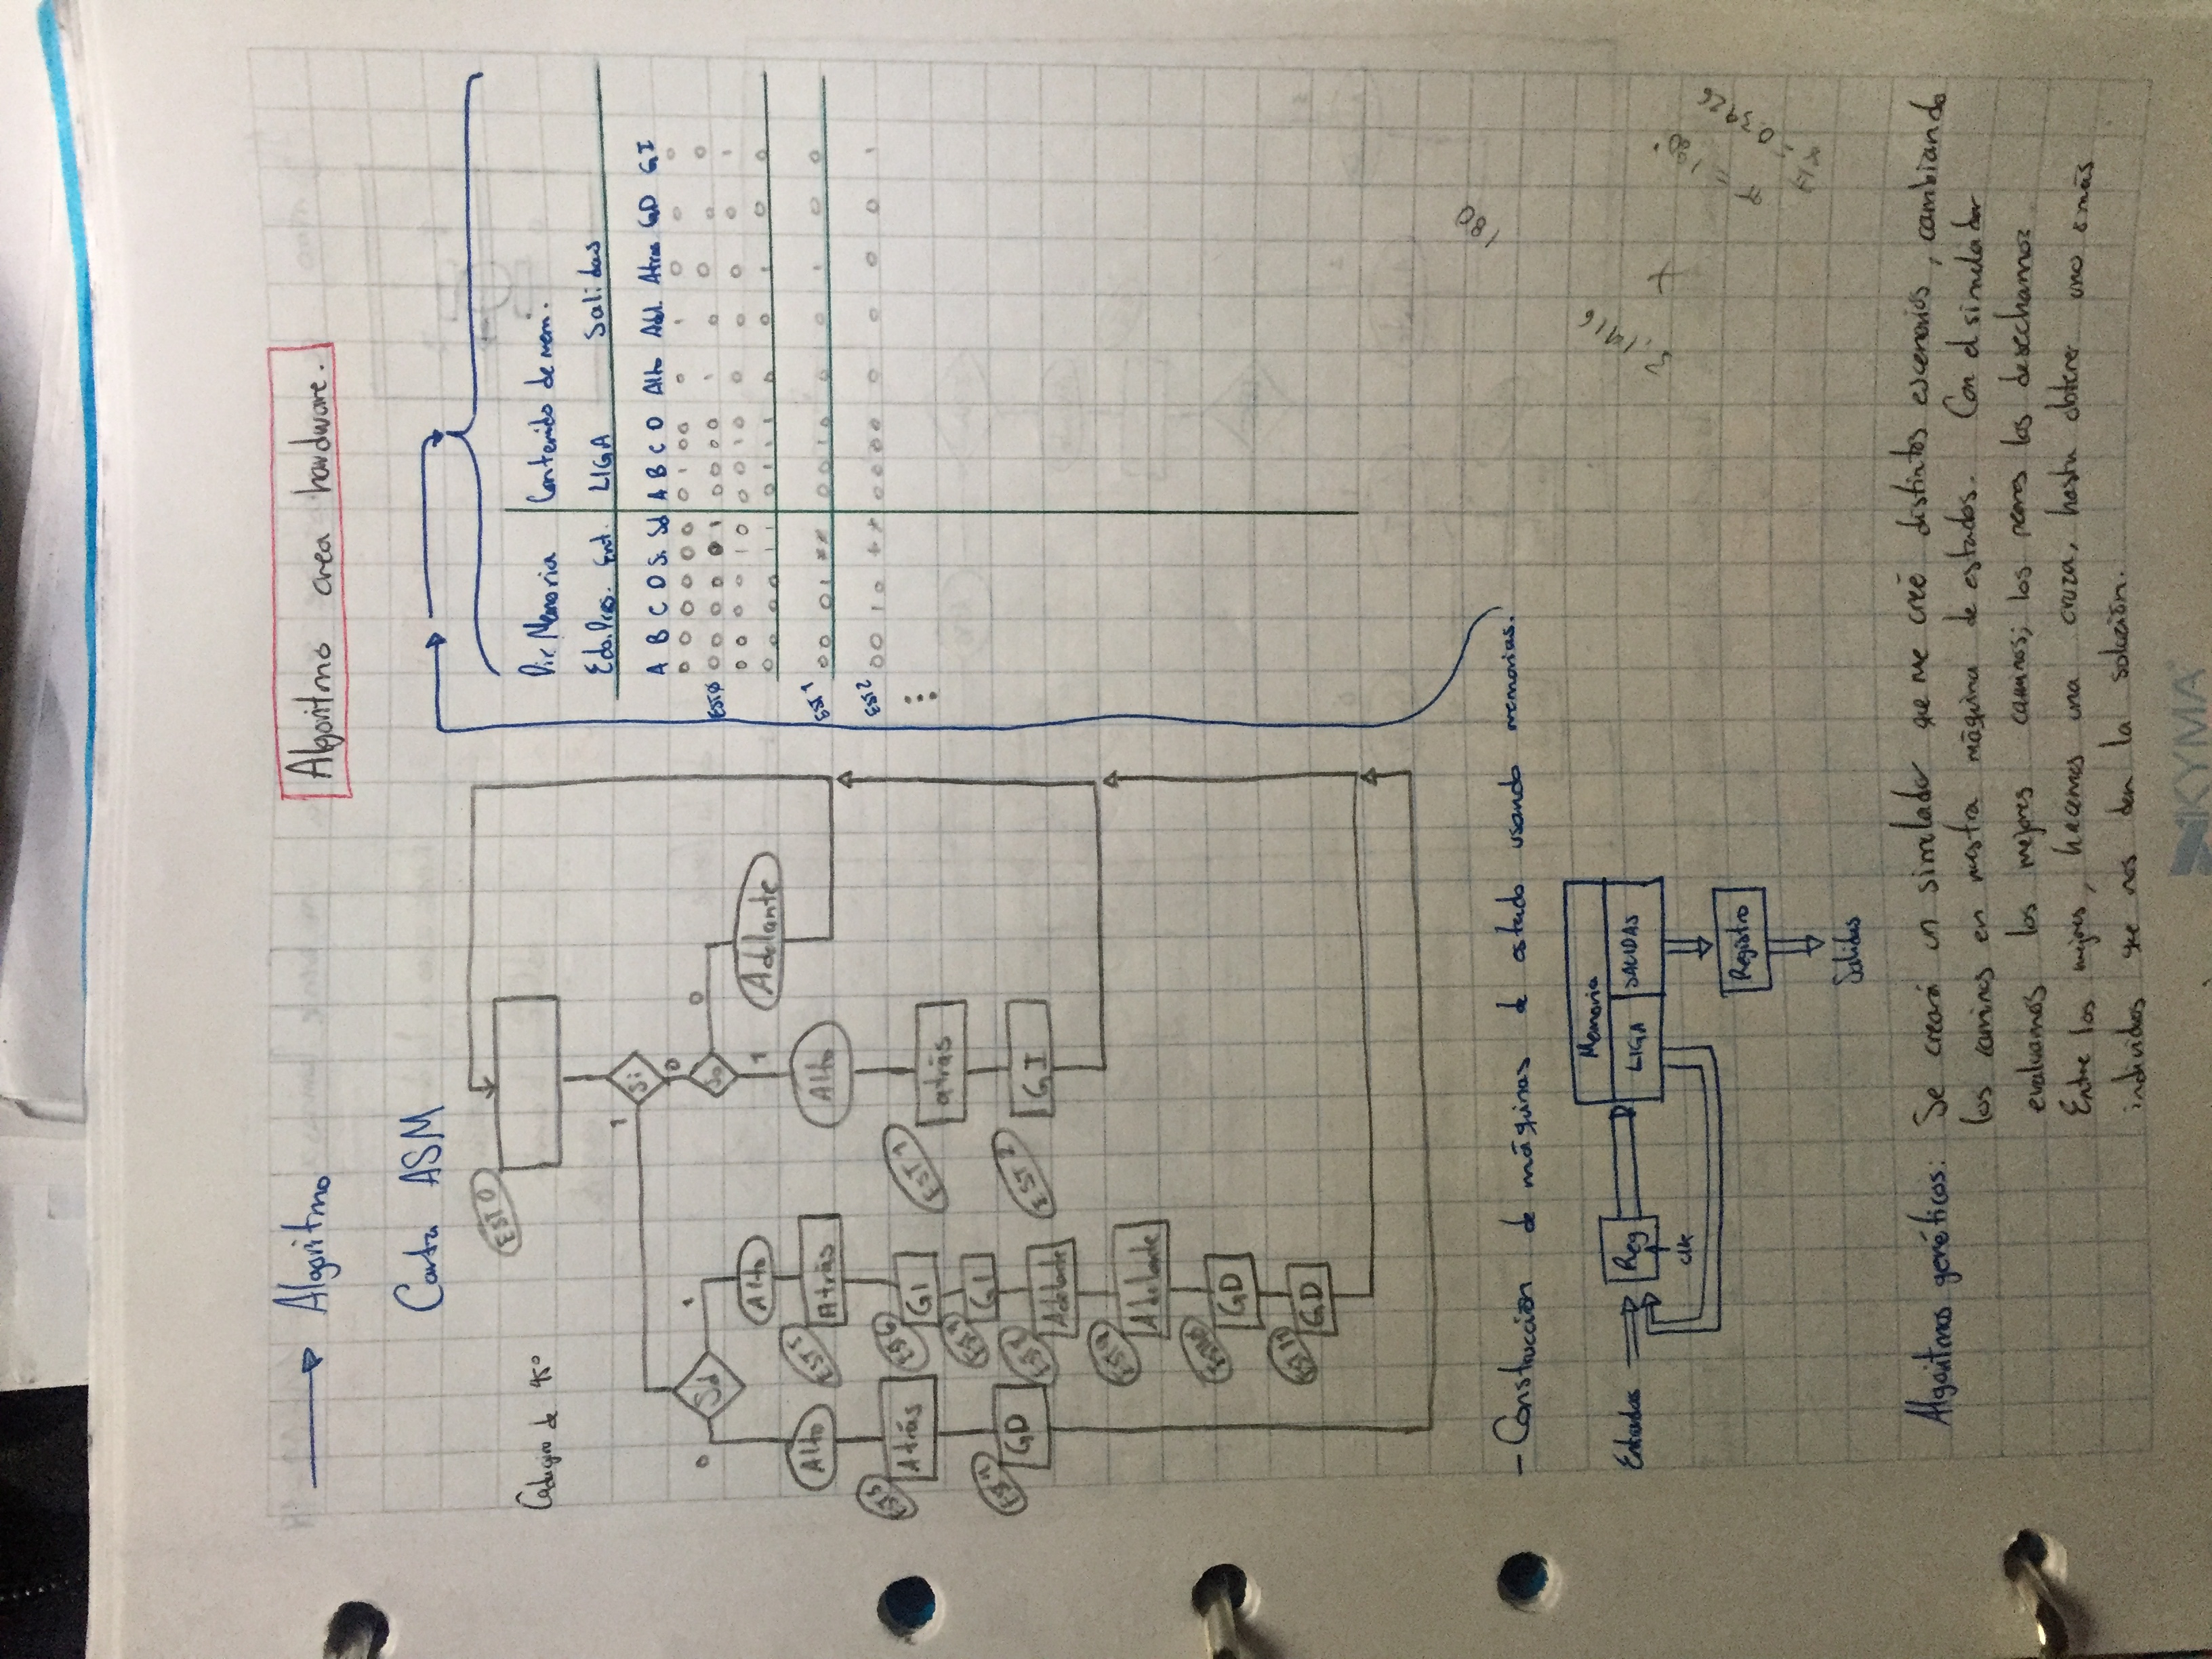 Algoritmo
Algoritmo crea hardware.
Carta ASM
EST 0
Cada giro de 45°
Si
1
0
Sd
0
1
0
1
Alto
Adelante
Alto
EST 5
Atrás
Alto
EST 3
Atrás
EST 6
GI
EST 1
atrás
EST 7
GI
EST 4
GD
Adelante
EST 2
GI
EST 9
Adelante
GD
EST 11
GD
Dir. Memoria Contenido de mem.
Edo. Pres. Ent. LIGA Salidas
A B C D Si Sd A B C D Alto Adel. Atras GD GI
0 0 0 0 0 0 0 1 0 0 0 1 0 0 0
EST0 0 0 0 0 0 1 0 0 0 0 1 0 0 0 0
0 0 0 0 1 0 0 0 1 0 0 0 0 0 1
0 0 0 0 1 1 0 1 1 1 0 0 1 0 0
EST 1 0 0 0 1 * * 0 0 1 0 0 0 1 0 0
EST 2 0 0 1 0 * * 0 0 0 0 0 0 0 0 1
- Construcción de máquinas de estado usando memorias.
Memoria
Entradas Reg LIGA SALIDAS
clk
Registro
Salidas
180
3.1416
x
π = 180°
= 0.3926
Algoritmos genéticos: Se creará un simulador que me creé distintos escenarios, cambiando
los caminos en nuestra máquina de estados. Con el simulador
evaluamos los mejores caminos; los peores los desechamos
Entre los mejores, hacemos una cruza, hasta obtener uno o más
individuos que nos den la solución.
KYMA